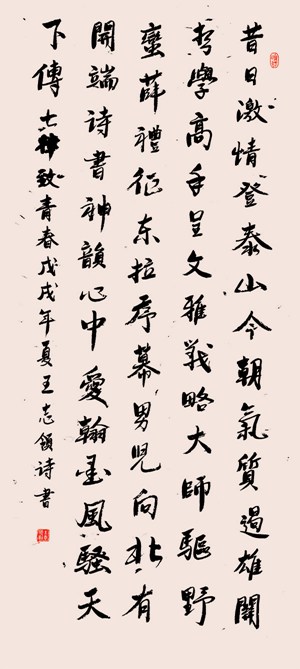 昔日激情登泰山今朝氣質過雄關
哲學高手呈文雅戰略大師驅野
蠻薛禮征东拉序幕男兒向北有
開端诗書神韻心中愛翰墨風騷天
下傳 七律致青春戊戌年夏王志領詩書